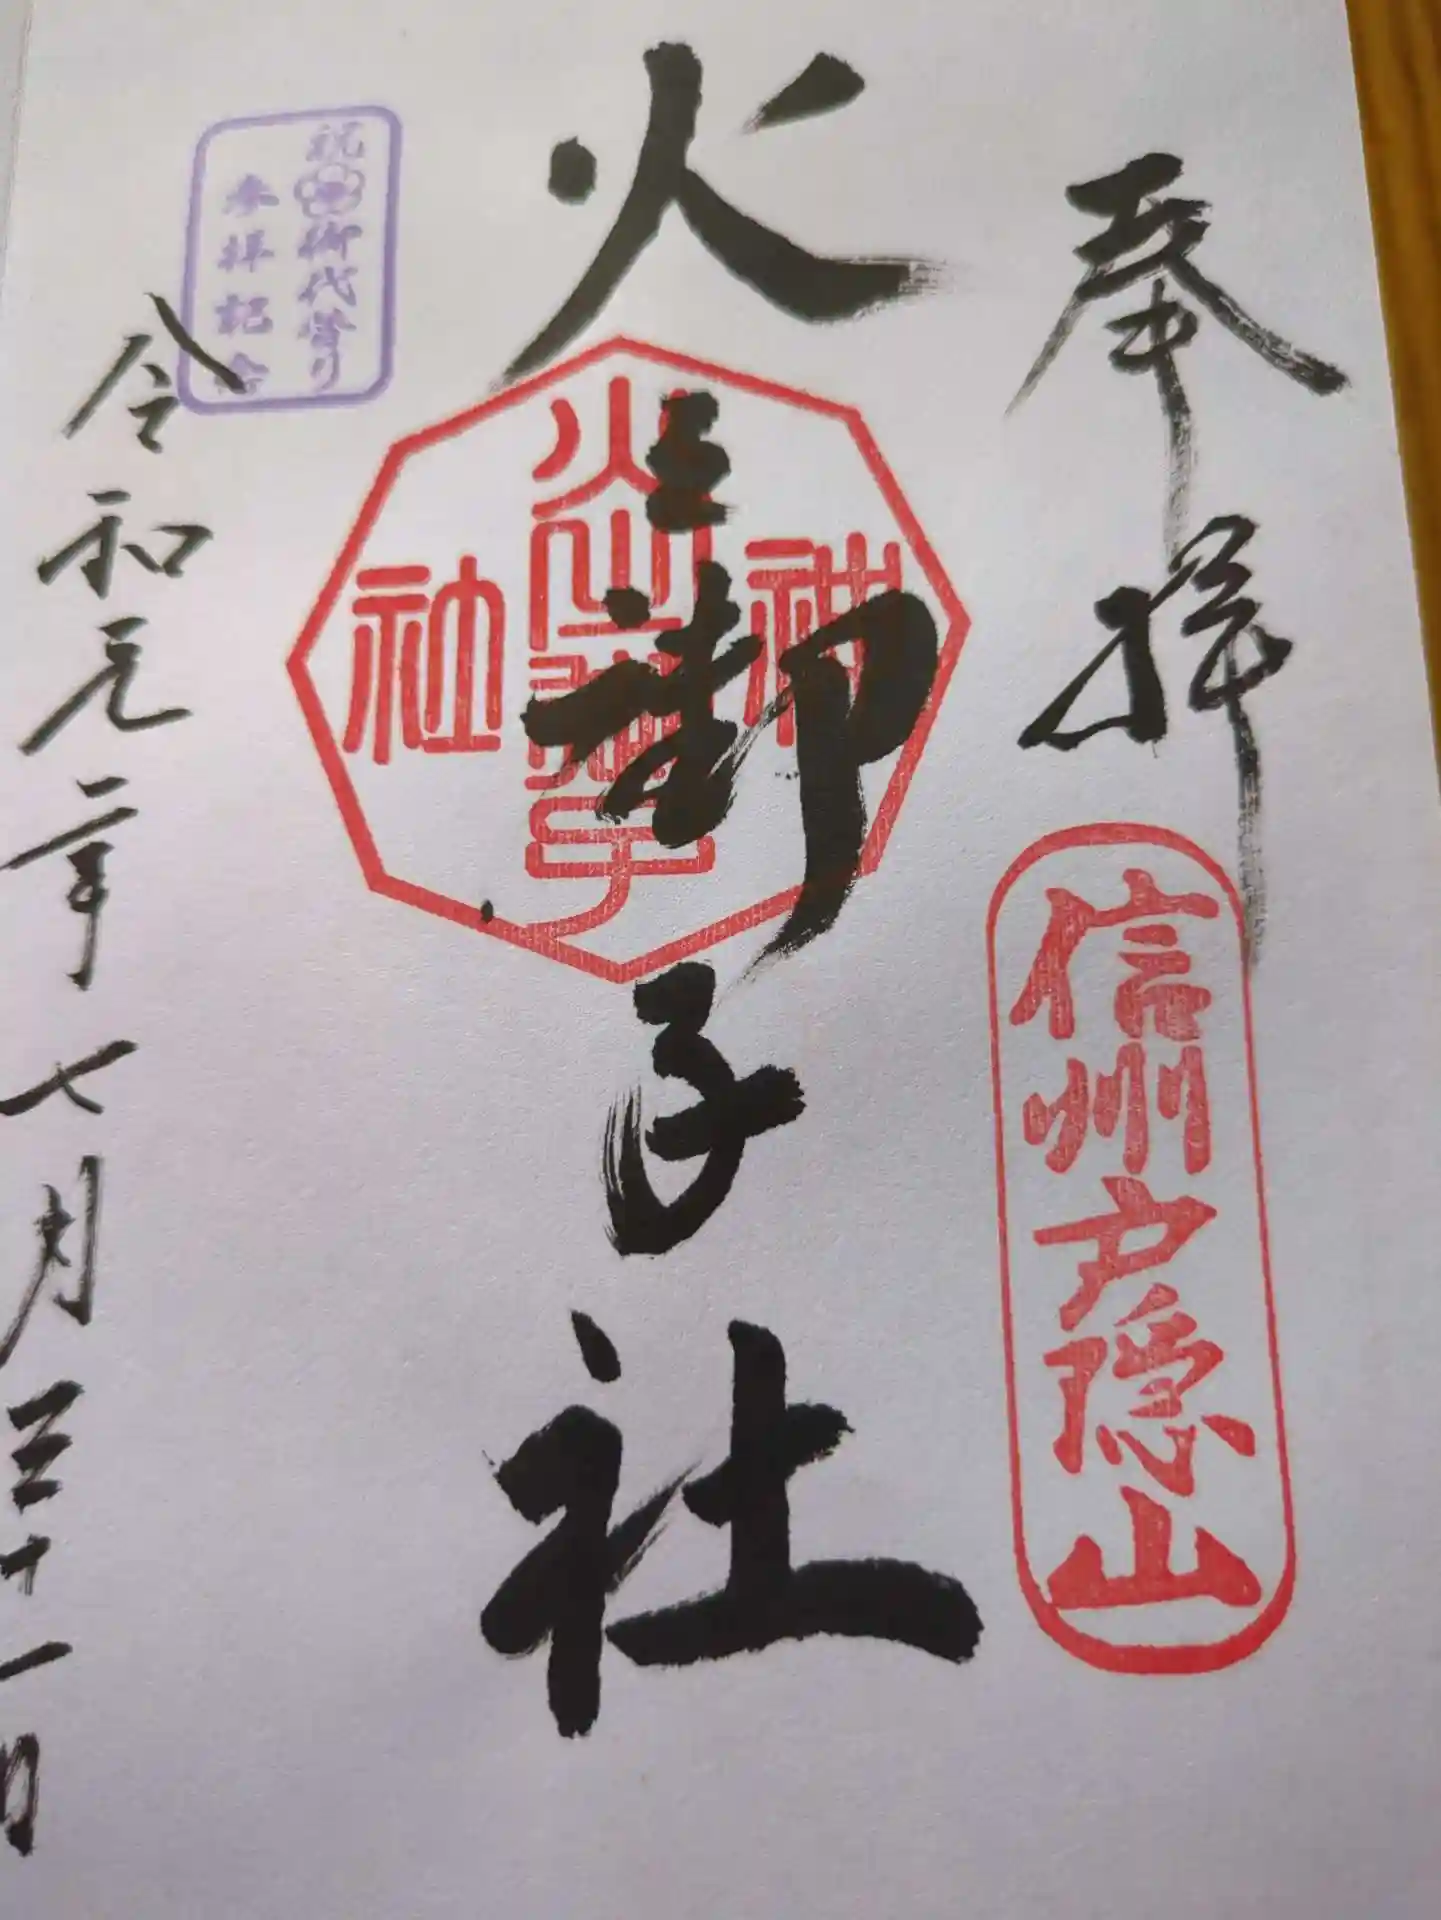 奉拝
信州戸隠山
火之御子社
火之御子
神
社
祝御代替り
参拝記念
令和元年七月三十一日